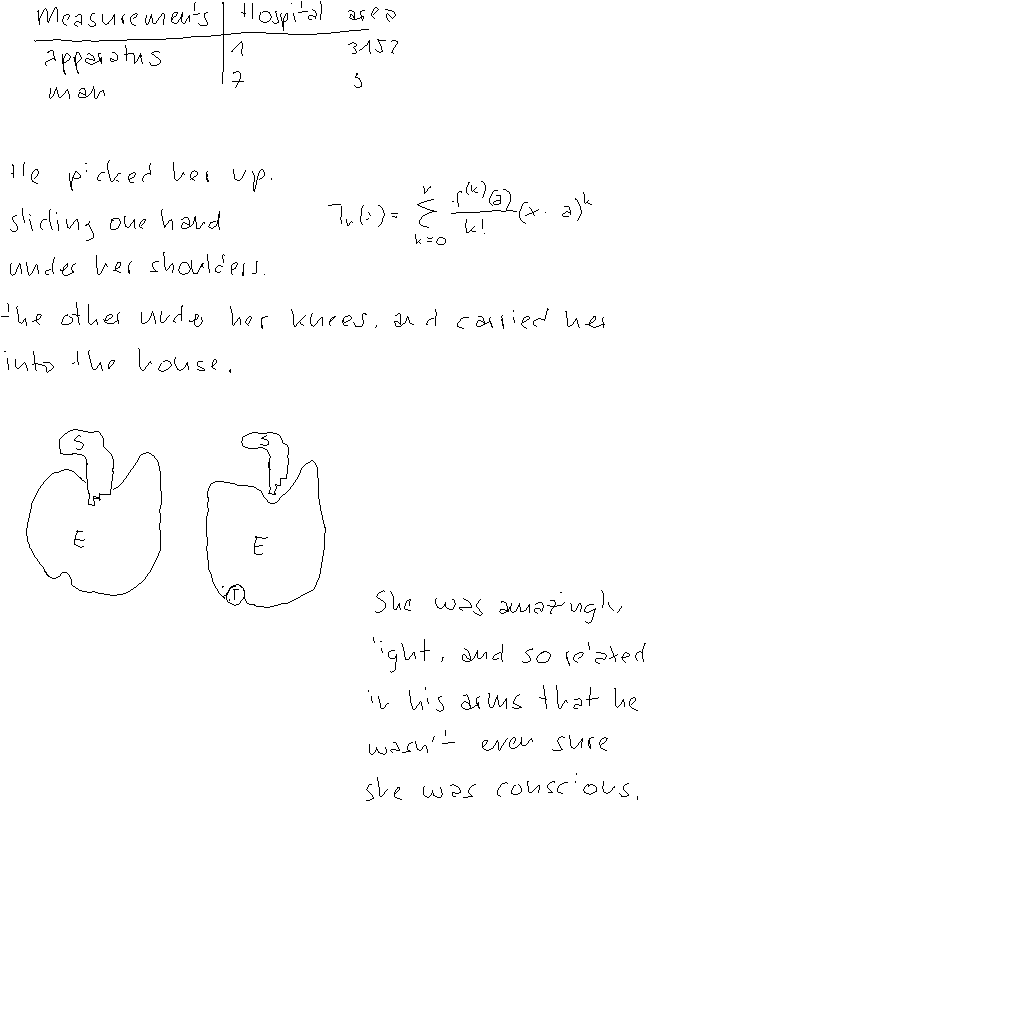 Measurements Hospital area
apparatus 1 3152
man 7 3
He picked her up.
sliding one hand
under her shoulders.
the other under her knees, and carried her
into the house.
Tₙ(x) = ∑ₖ₌₀ⁿ f⁽ᵏ⁾(a)/k! (x - a)ᵏ
S S
E E
T
She was amazingly
light, and so relaxed
in his arms that he
wasn't even sure
she was conscious.